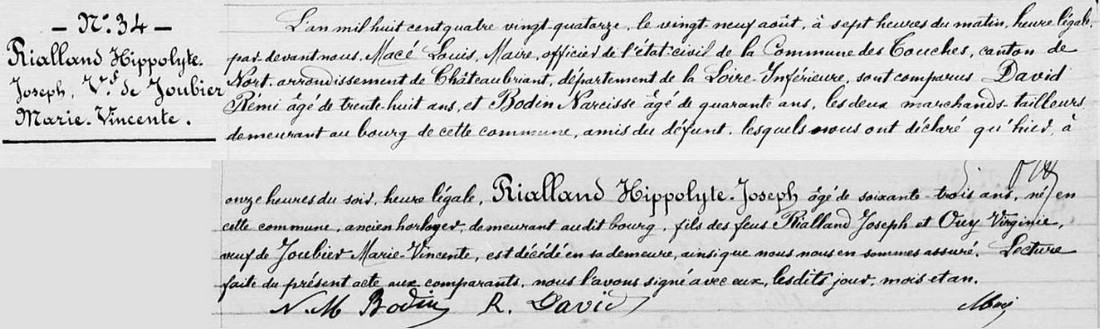 — N° 34 —
Rialland Hippolyte-
Joseph, Vf de Joubier
Marie-Vincente.
L'an mil huit cent quatre vingt-quatorze, le vingt neuf août, à sept heures du matin, heure légale,
par devant nous, Macé Louis, Maire, officier de l'état civil de la Commune des Touches, canton de
Nort, arrondissement de Châteaubriant, département de la Loire-Inférieure, sont comparus David
Rémi âgé de trente-huit ans, et Bodin Narcisse âgé de quarante ans, les deux marchands-tailleurs,
demeurant au bourg de cette commune, amis du défunt, lesquels nous ont déclaré qu'hier, à
onze heures du soir, heure légale, Rialland Hippolyte-Joseph âgé de soixante-trois ans, né en
cette commune, ancien horloger, demeurant audit bourg, fils des feus Rialland Joseph et Oury Virginie,
veuf de Joubier Marie-Vincente, est décédé en sa demeure, ainsi que nous nous en sommes assuré. Lecture
faite du présent acte aux comparants, nous l'avons signé avec eux, lesdits jour, mois et an.
N. M Bodin R. David